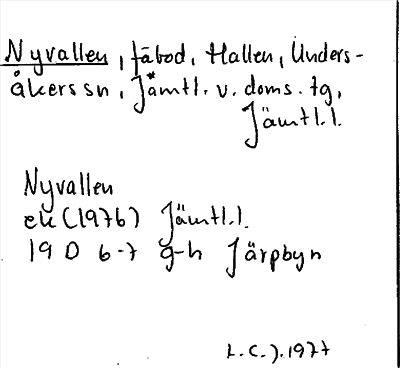 Nyvallen, fäbod, Hallen, Unders-
åkers sn, Jämtl. v. doms. tg,
Jämtl.l.
Nyvallen
ek (1976) Jämtl.l.
19 D 6-7 g-h Järpbyn
L.C.J. 1977